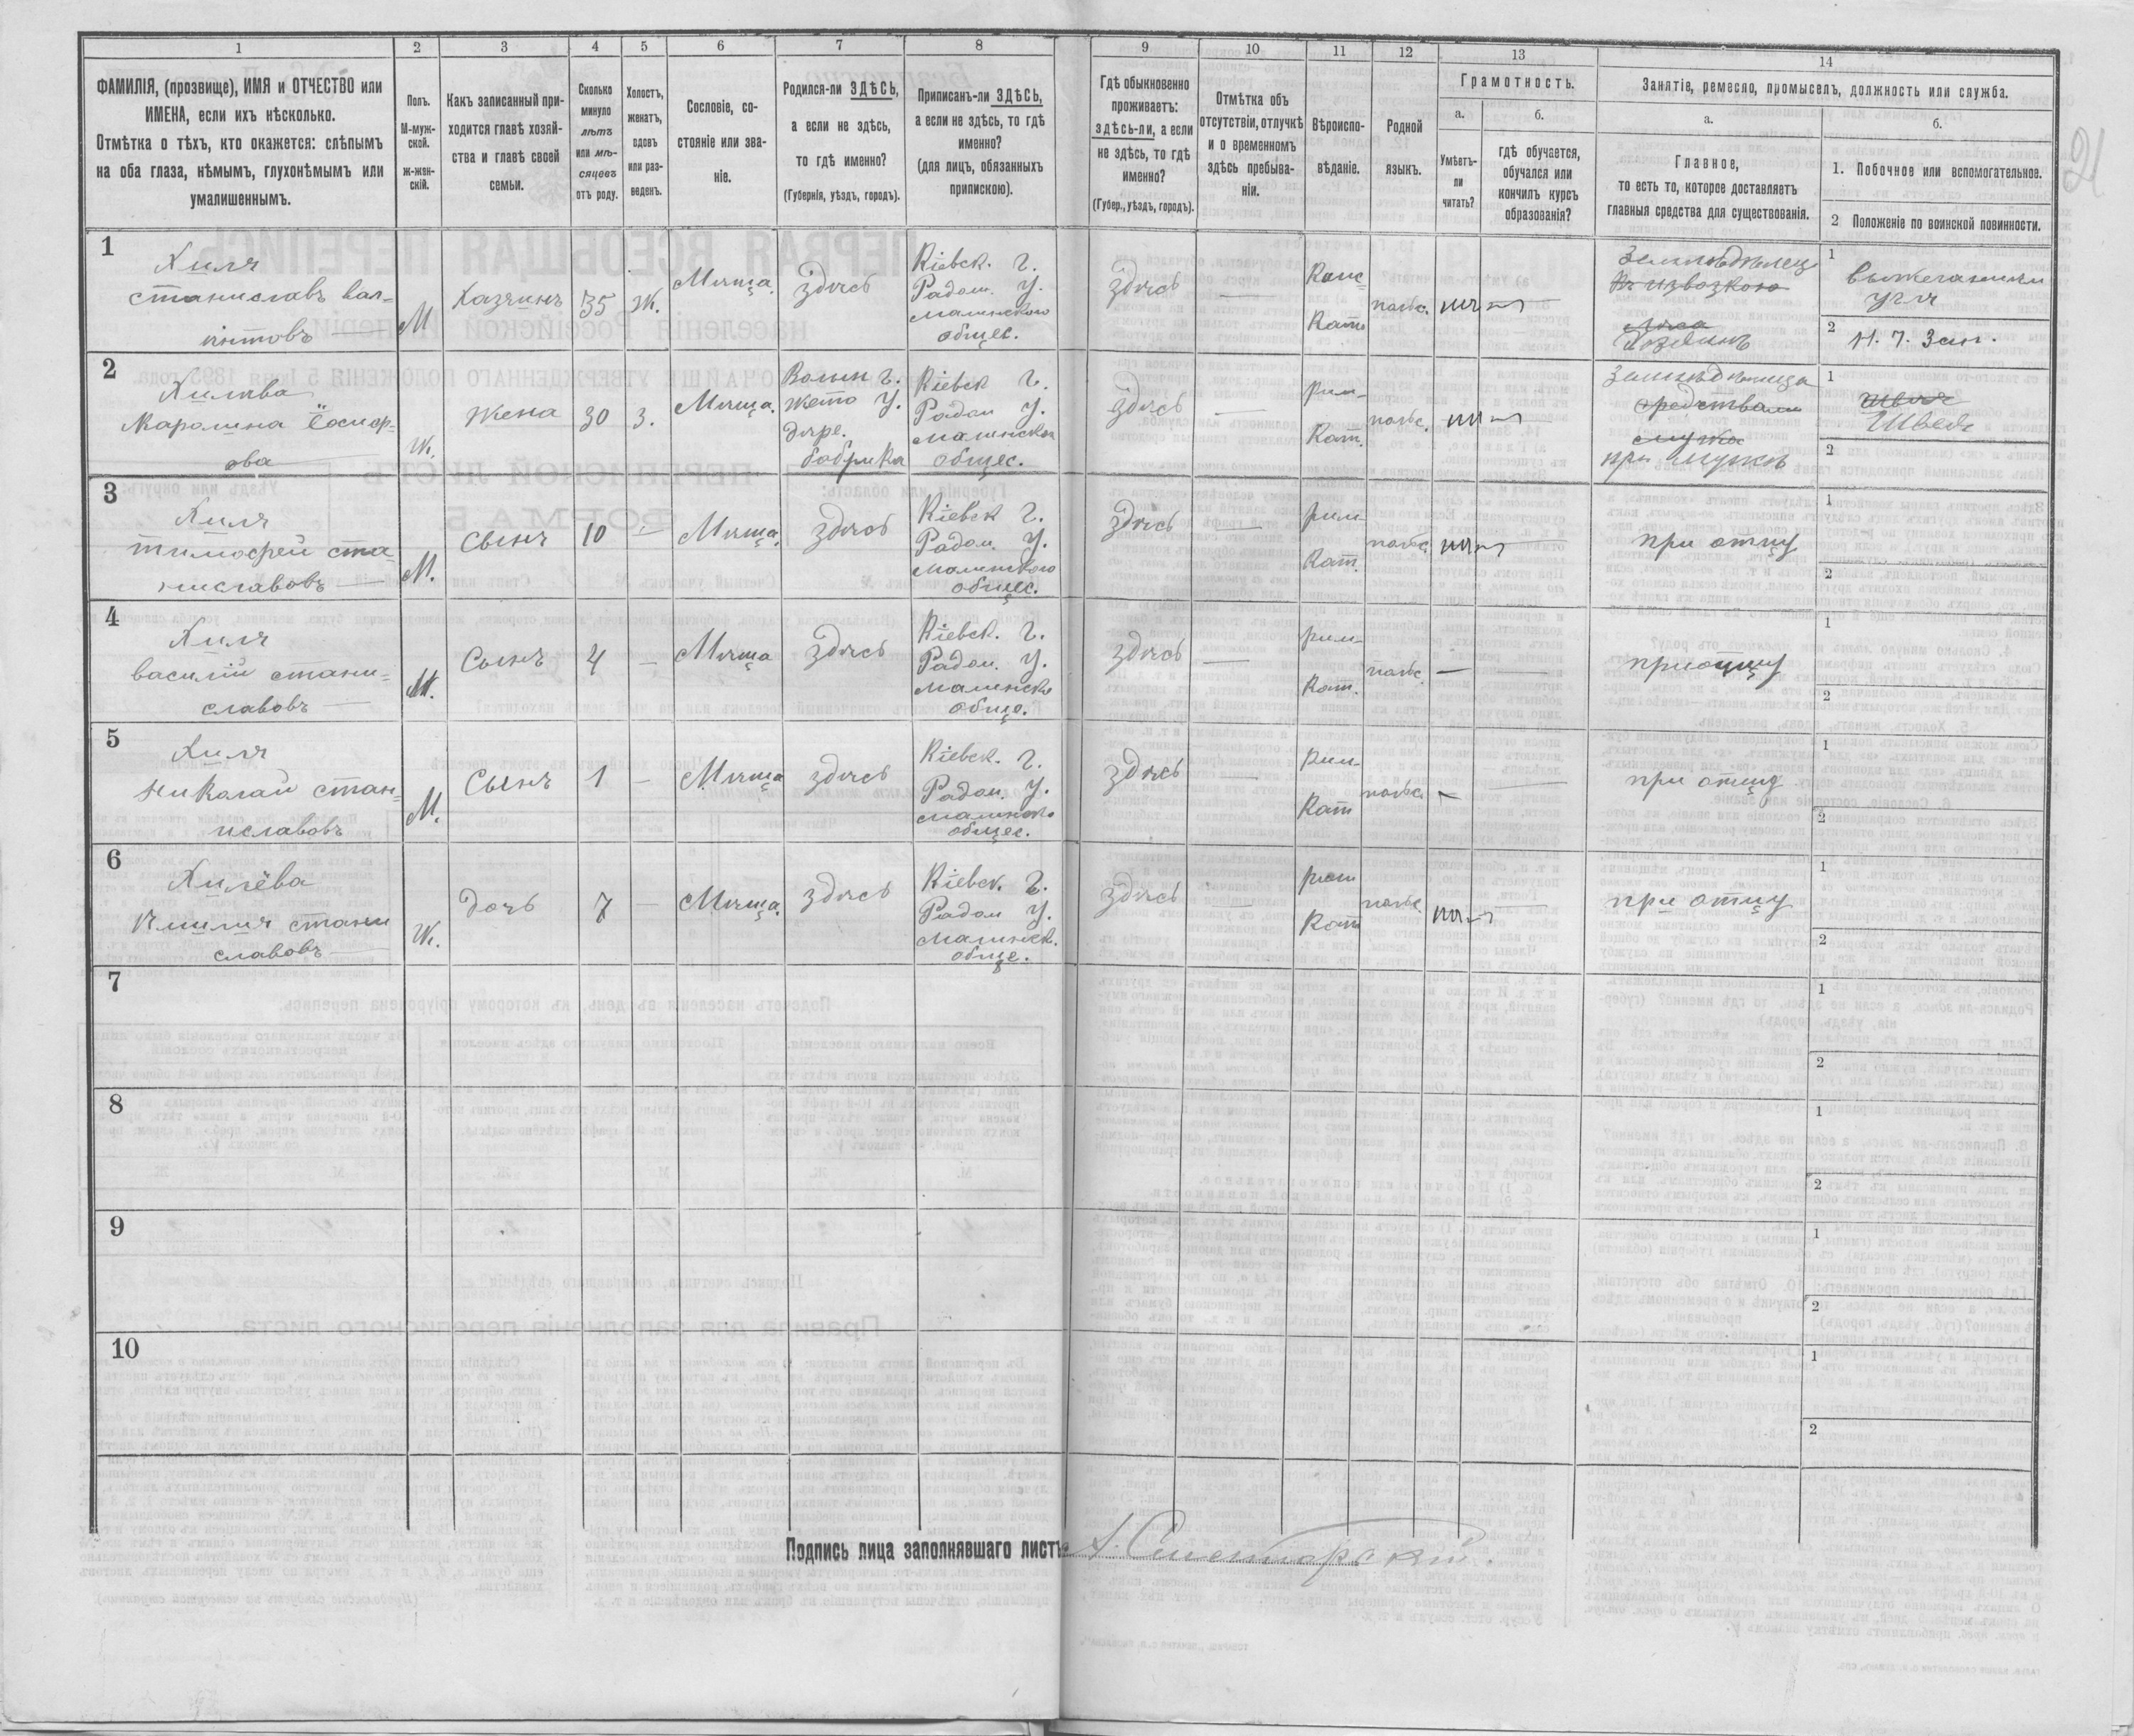 1 2 3 4 5 6 7 8 9 10 11 12 13 14
ФАМИЛІЯ, (прозвище), ИМЯ и ОТЧЕСТВО или
ИМЕНА, если ихъ нѣсколько.
Отмѣтка о тѣхъ, кто окажется: слѣпымъ
на оба глаза, нѣмымъ, глухонѣмымъ или
умалишеннымъ.
Полъ.
М-муж-
ской.
ж-жен-
скій.
Какъ записанный при-
ходится главѣ хозяй-
ства и главѣ своей
семьи.
Сколько
минуло
лѣтъ
или мѣ-
сяцевъ
отъ роду.
Холостъ,
женатъ,
вдовъ
или раз-
веденъ.
Сословіе, со-
стояніе или зва-
ніе.
Родился-ли ЗДѢСЬ,
а если не здѣсь,
то гдѣ именно?
(Губернія, уѣздъ, городъ).
Приписанъ-ли ЗДѢСЬ,
а если не здѣсь, то гдѣ
именно?
(для лицъ, обязанныхъ
припискою).
Гдѣ обыкновенно
проживаетъ:
здѣсь-ли, а если
не здѣсь, то гдѣ
именно?
(Губер., уѣздъ, городъ).
Отмѣтка объ
отсутствіи, отлучкѣ
и о временномъ
здѣсь пребыва-
ніи.
Вѣроиспо-
вѣданіе.
Родной
языкъ.
Грамотность.
а.
Умѣетъ-
ли
читать?
б.
гдѣ обучается,
обучался или
кончилъ курсъ
образованія?
Занятіе, ремесло, промыселъ, должность или служба.
а.
Главное,
то есть то, которое доставляетъ
главныя средства для существованія.
б.
1. Побочное или вспомогательное.
2 Положеніе по воинской повинности.
1
Хиля
станиславъ вал=
М
Хазяинъ
35
Ж.
Мѣща.
здѣсь
Кіевск. г.
Радом. у.
Малинского
общес.
здѣсь
—
Кат
польс.
нѣт
Земледѣлец
Хозяинъ
1
выжегании
угля
2
2
Каролина
Ж.
жена
30
З.
Мѣща.
Волын г.
Жито у.
Кіевск г.
Радом у.
общес.
здѣсь
—
рим-
Кат.
польс.
нѣт
при мужѣ
1
Швея
2
3
Хиля
тимофей ста
ниславовъ
М.
сынъ
10
—
Мѣща.
здѣсь
Кіевск г.
Радом. у.
Малинского
общес.
здѣсь
—
рим-
Кат.
польс.
нѣт
при отцу
1
2
4
Хиля
василій стани=
славовъ
М.
Сынъ
4
—
Мѣща
здѣсь
Кіевск. г.
Радом. у.
Малинско
общо.
здѣсь
—
рим-
Кат.
польс.
—
при отцу
1
2
5
Хиля
Николай стан=
иславовъ
М.
Сынъ
1
—
Мѣща
здѣсь
Кіевск. г.
Радом. у.
Малинско
общес.
здѣсь
—
Рим-
Кат
польс.
—
при отцу
1
2
6
Хилёва
стани
славовъ
Ж.
дочь
7
—
Мѣща.
здѣсь
Кіевск. г.
Радом у.
Малинск.
обще.
здѣсь
—
рим
Кат
польс.
нѣт
при отцу
1
2
7
1
2
8
1
2
9
1
2
10
1
2
Подпись лица заполнявшаго листъ